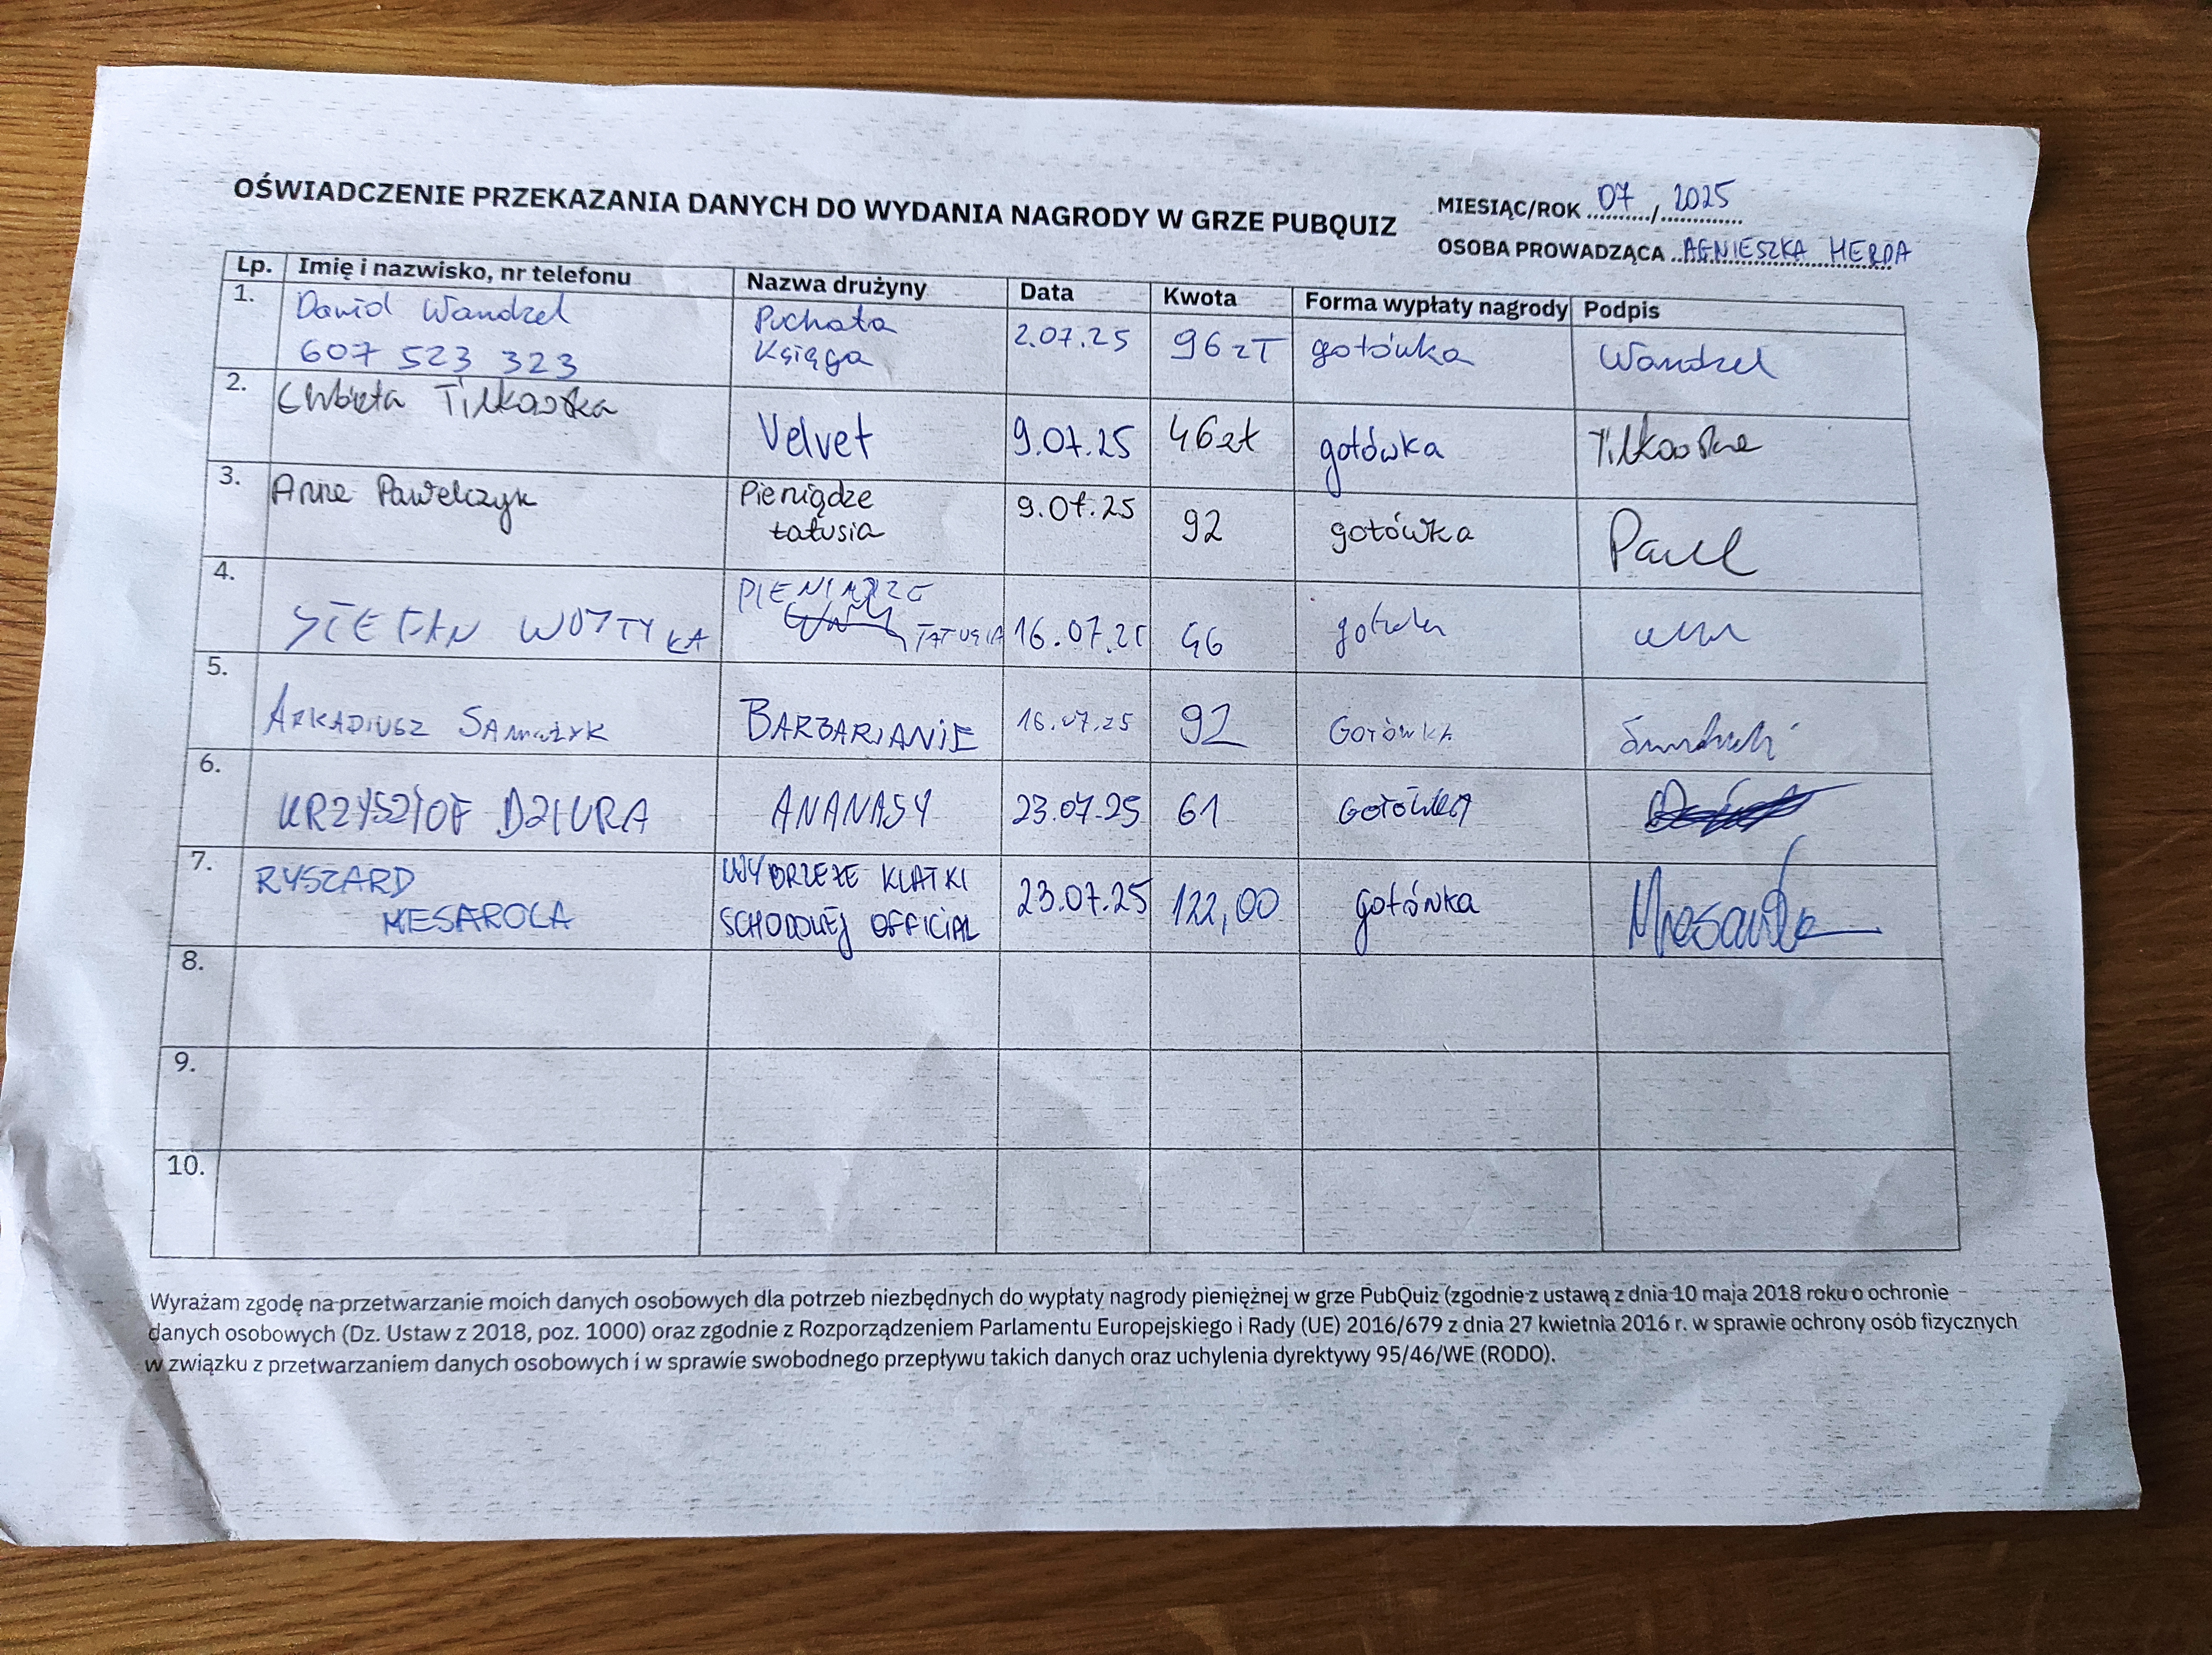 OŚWIADCZENIE PRZEKAZANIA DANYCH DO WYDANIA NAGRODY W GRZE PUBQUIZ
MIESIĄC/ROK 07 / 2025
OSOBA PROWADZĄCA AGNIESZKA HERDA
Lp. Imię i nazwisko, nr telefonu Nazwa drużyny Data Kwota Forma wypłaty nagrody Podpis
1. Dawid Wandzel Puchata
607 523 323 Księga 2.07.25 96 zł gotówka Wandzel
2. Elżbieta
Velvet 9.07.25 46 zł gotówka
3. Anna Pawelczyk Pieniądze
tatusia 9.07.25 92 gotówka
4. PIENIĄDZE
STEFAN WOTTYKA TATUSIA 16.07.25 46
5. ARKADIUSZ BARBARIANIE 16.07.25 92 GOTÓWKA
6. KRZYSZTOF DZIURA ANANASY 23.07.25 61 GOTÓWKA
7. RYSZARD WYBRZEŻE KLATKI
MESAROLA SCHODOWEJ OFFICIAL 23.07.25 122,00 gotówka
8.
9.
10.
Wyrażam zgodę na przetwarzanie moich danych osobowych dla potrzeb niezbędnych do wypłaty nagrody pieniężnej w grze PubQuiz (zgodnie z ustawą z dnia 10 maja 2018 roku o ochronie
danych osobowych (Dz. Ustaw z 2018, poz. 1000) oraz zgodnie z Rozporządzeniem Parlamentu Europejskiego i Rady (UE) 2016/679 z dnia 27 kwietnia 2016 r. w sprawie ochrony osób fizycznych
w związku z przetwarzaniem danych osobowych i w sprawie swobodnego przepływu takich danych oraz uchylenia dyrektywy 95/46/WE (RODO).